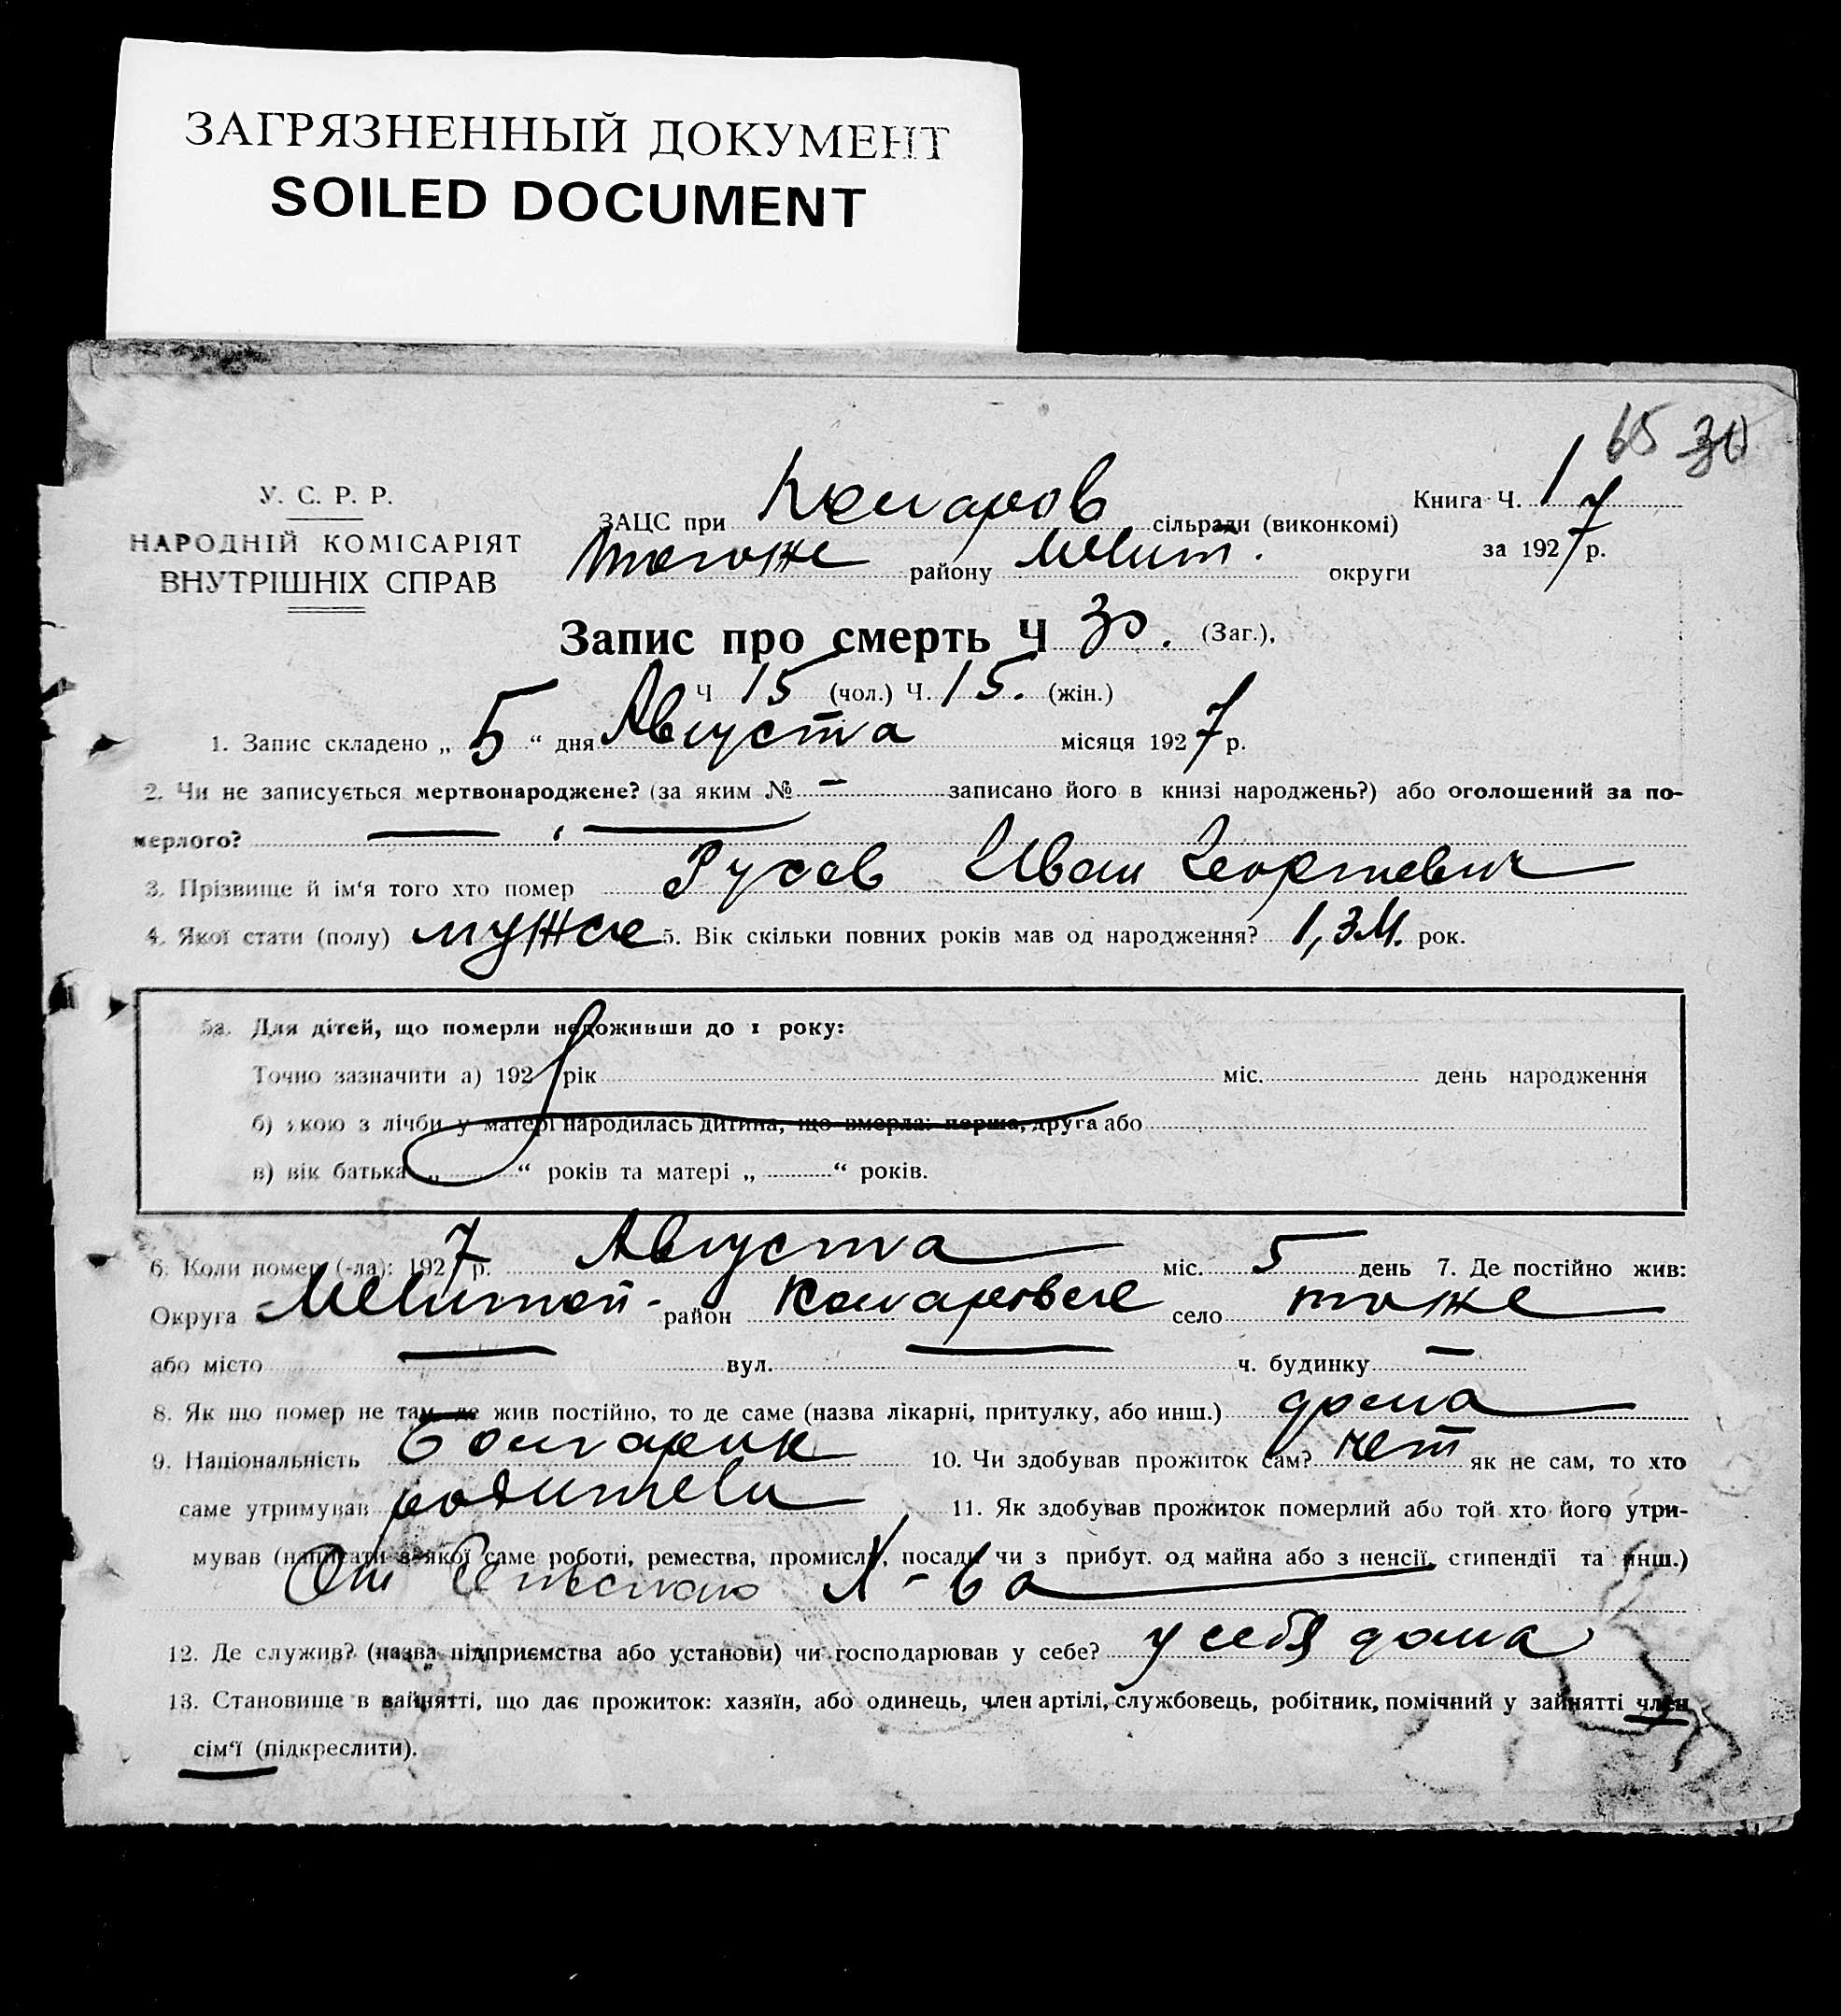 ЗАГРЯЗНЕННЫЙ ДОКУМЕНТ
SOILED DOCUMENT
65 30
У. С. Р. Р.
НАРОДНІЙ КОМІСАРІЯТ
ВНУТРІШНІХ СПРАВ
ЗАЦС при сільради (виконкомі)
Книга Ч. 1
тогоже району Мелит. округи
за 1927 р.
Запис про смерть Ч 30. (Заг.),
Ч 15 (чол.) Ч. 15. (жін.)
1. Запис складено „ 5 “ дня Августа місяця 1927 р.
2. Чи не записується мертвонароджене? (за яким № — записано його в книзі народжень?) або оголошений за по-
мерлого? —
3. Прізвище й ім‘я того хто помер Русев Иван Георгиевич
4. Якої стати (полу) мужск 5. Вік скільки повних років мав од народження? 1,3 М. рок.
5а. Для дітей, що померли недоживши до 1 року:
Точно зазначити а) 192 рік міс. день народження
б) якою з лічби у матері народилась дитина, що вмерла: перша, друга або
в) вік батька „ “ років та матері „ “ років.
6. Коли помер (-ла): 1927 р. Августа міс. 5 день 7. Де постійно жив:
Округа Мелитоп- район село тоже
або місто — вул. — ч. будинку —
8. Як що помер не там, де жив постійно, то де саме (назва лікарні, притулку, або инш.) дома
9. Національність Болгарин 10. Чи здобував прожиток сам? нет як не сам, то хто
саме утримував родители 11. Як здобував прожиток померлий або той хто його утри-
мував (написати з якої саме роботи, ремества, промислу, посади чи з прибут. од майна або з пенсії, стипендії та инш.)
От Сельского Х-ва
12. Де служив? (назва підприємства або установи) чи господарював у себе? у себя дома
13. Становище в зайнятті, що дає прожиток: хазяїн, або одинець, член артілі, службовець, робітник, помічний у зайнятті член
сім‘ї (підкреслити).